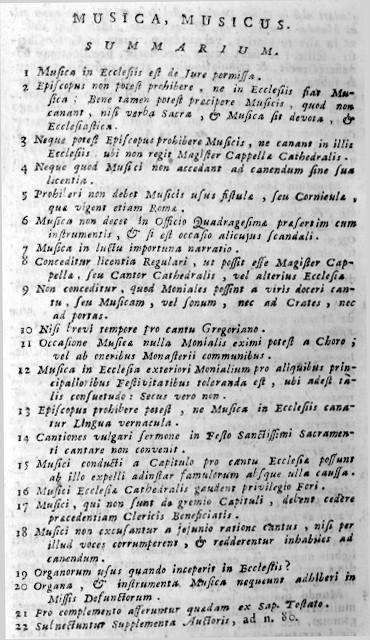 MUSICA, MUSICUS.
SUMMARIUM.
1 Musica in Ecclesiis est de Jure permissa.
2 Episcopus non potest prohibere, ne in Ecclesiis fiat Mu-
sica; Bene tamen potest præcipere Musicis, quod non
canant, nisi verba Sacra, & Musica sit devota, &
Ecclesiastica.
3 Neque potest Episcopus prohibere Musicis, ne canant in illis
Ecclesiis, ubi non regit Magister Cappellæ Cathedralis.
4 Neque quod Musici non accedant ad canendum sine sua
licentia.
5 Prohiberi non debet Musicis usus fistulæ, seu Corniculæ,
quæ vigent etiam Romæ.
6 Musica non decet in Officio Quadragesimæ præsertim cum
instrumentis, & si est occasio alicujus scandali.
7 Musica in luctu importuna narratio.
8 Conceditur licentia Regulari, ut possit esse Magister Cap-
pellæ, seu Cantor Cathedralis, vel alterius Ecclesiæ.
9 Non conceditur, quod Moniales possint a viris doceri can-
tu, seu Musicam, vel sonum, nec ad Crates, nec
ad portas.
10 Nisi brevi tempore pro cantu Gregoriano.
11 Occasione Musicæ nulla Monialis eximi potest a Choro;
vel ab oneribus Monasterii communibus.
12 Musica in Ecclesia exteriori Monialium pro aliquibus prin-
cipalioribus Festivitatibus toleranda est, ubi adest ta-
lis consuetudo: Secus vero non.
13 Episcopus prohibere potest, ne Musica in Ecclesiis cana-
tur Lingua vernacula.
14 Cantiones vulgari sermone in Festo Sanctissimi Sacramen-
ti cantare non convenit.
15 Musici conducti a Capitulo pro cantu Ecclesiæ possunt
ab illo expelli adinstar famulorum absque ulla caussa.
16 Musici Ecclesiæ Cathedralis gaudent privilegio Fori.
17 Musici, qui non sunt de gremio Capituli, debent cedere
præcedentiam Clericis Beneficiatis.
18 Musici non excusantur a jejunio ratione cantus, nisi per
illud voces corrumperent, & redderentur inhabiles ad
canendum.
19 Organorum usus quando inceperit in Ecclesiis?
20 Organa, & instrumenta Musica nequeunt adhiberi in
Missis Defunctorum.
21 Pro complemento afferuntur quædam ex Sap. Tostato.
22 Subnectuntur Supplementa Auctoris, ad n. 80.